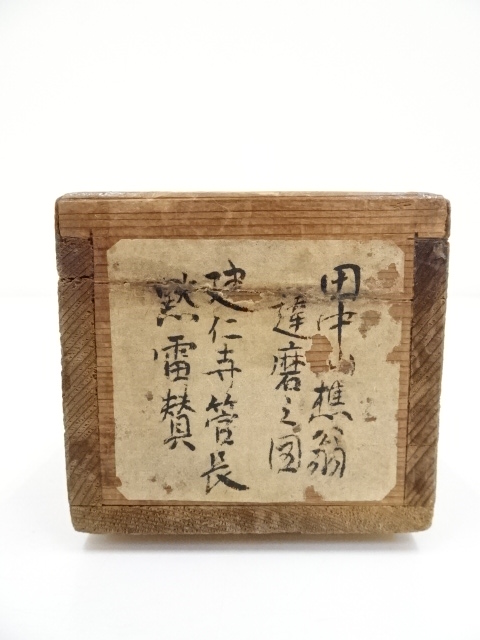 田中山樵翁
達磨之図
建仁寺管長
黙雷賛